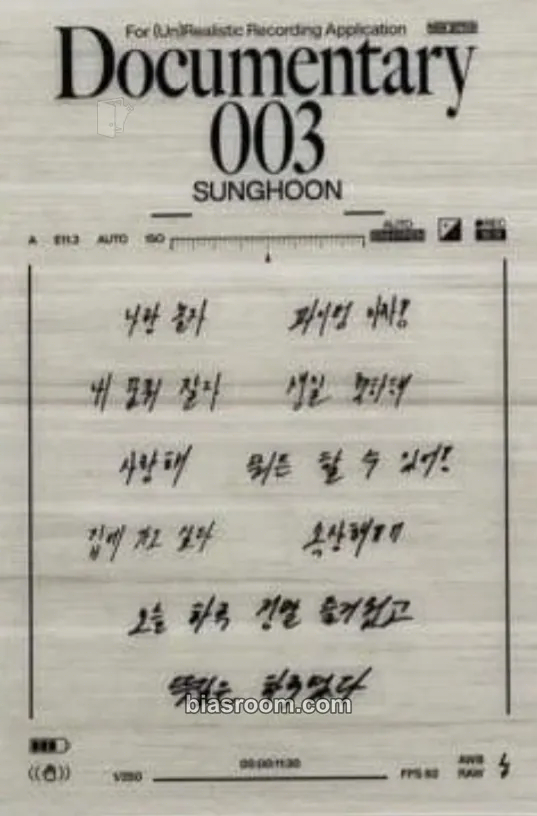 For (Un)Realistic Recording Application
Documentary
003
SUNGHOON
A AUTO ISO AUTO REC
나랑 놀자 파이팅 아자!
내 꿈꿔 잘자 생일 축하해
사랑해 뭐든 할 수 있어!
집에 가고 싶다 속상해ㅠㅠ
오늘 하루 정말 즐거웠고
뜻깊은 하루였다
biasroom.com
1/250 00:00:11:30 FPS 60 AWB
RAW